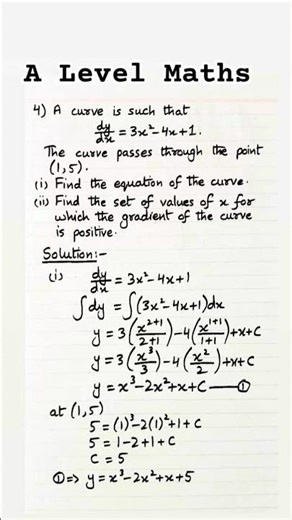 A Level Maths
4) A curve is such that
dy/dx = 3x² - 4x + 1.
The curve passes through the point
(1,5).
(i) Find the equation of the curve.
(ii) Find the set of values of x for
which the gradient of the curve
is positive.
Solution:-
(i) dy/dx = 3x² - 4x + 1
∫dy = ∫(3x² - 4x + 1)dx
y = 3(x²⁺¹/2+1) - 4(x¹⁺¹/1+1) + x + c
y = 3(x³/3) - 4(x²/2) + x + c
y = x³ - 2x² + x + c —①
at (1,5)
5 = (1)³ - 2(1)² + 1 + c
5 = 1 - 2 + 1 + c
c = 5
① => y = x³ - 2x² + x + 5